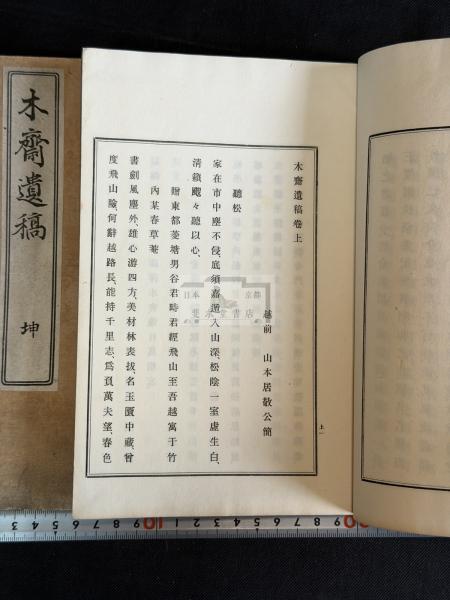 木齋遺稿
坤
木齋遺稿卷上
越前 山本居敬公簡
聽松
家在市中塵不侵、底須嘉遁入山深、松陰一室虛生白、
清籟颼々聽以心、
贈東都菱塘男谷君時君經飛山至吾越寓于竹
內某春草菴
書劍風塵外、雄心游四方、美材林表拔、名玉匱中藏、曾
度飛山險、何辭越路長、能持千里志、爲負萬夫望、春色
上一
日本 京都
斐承堂書店